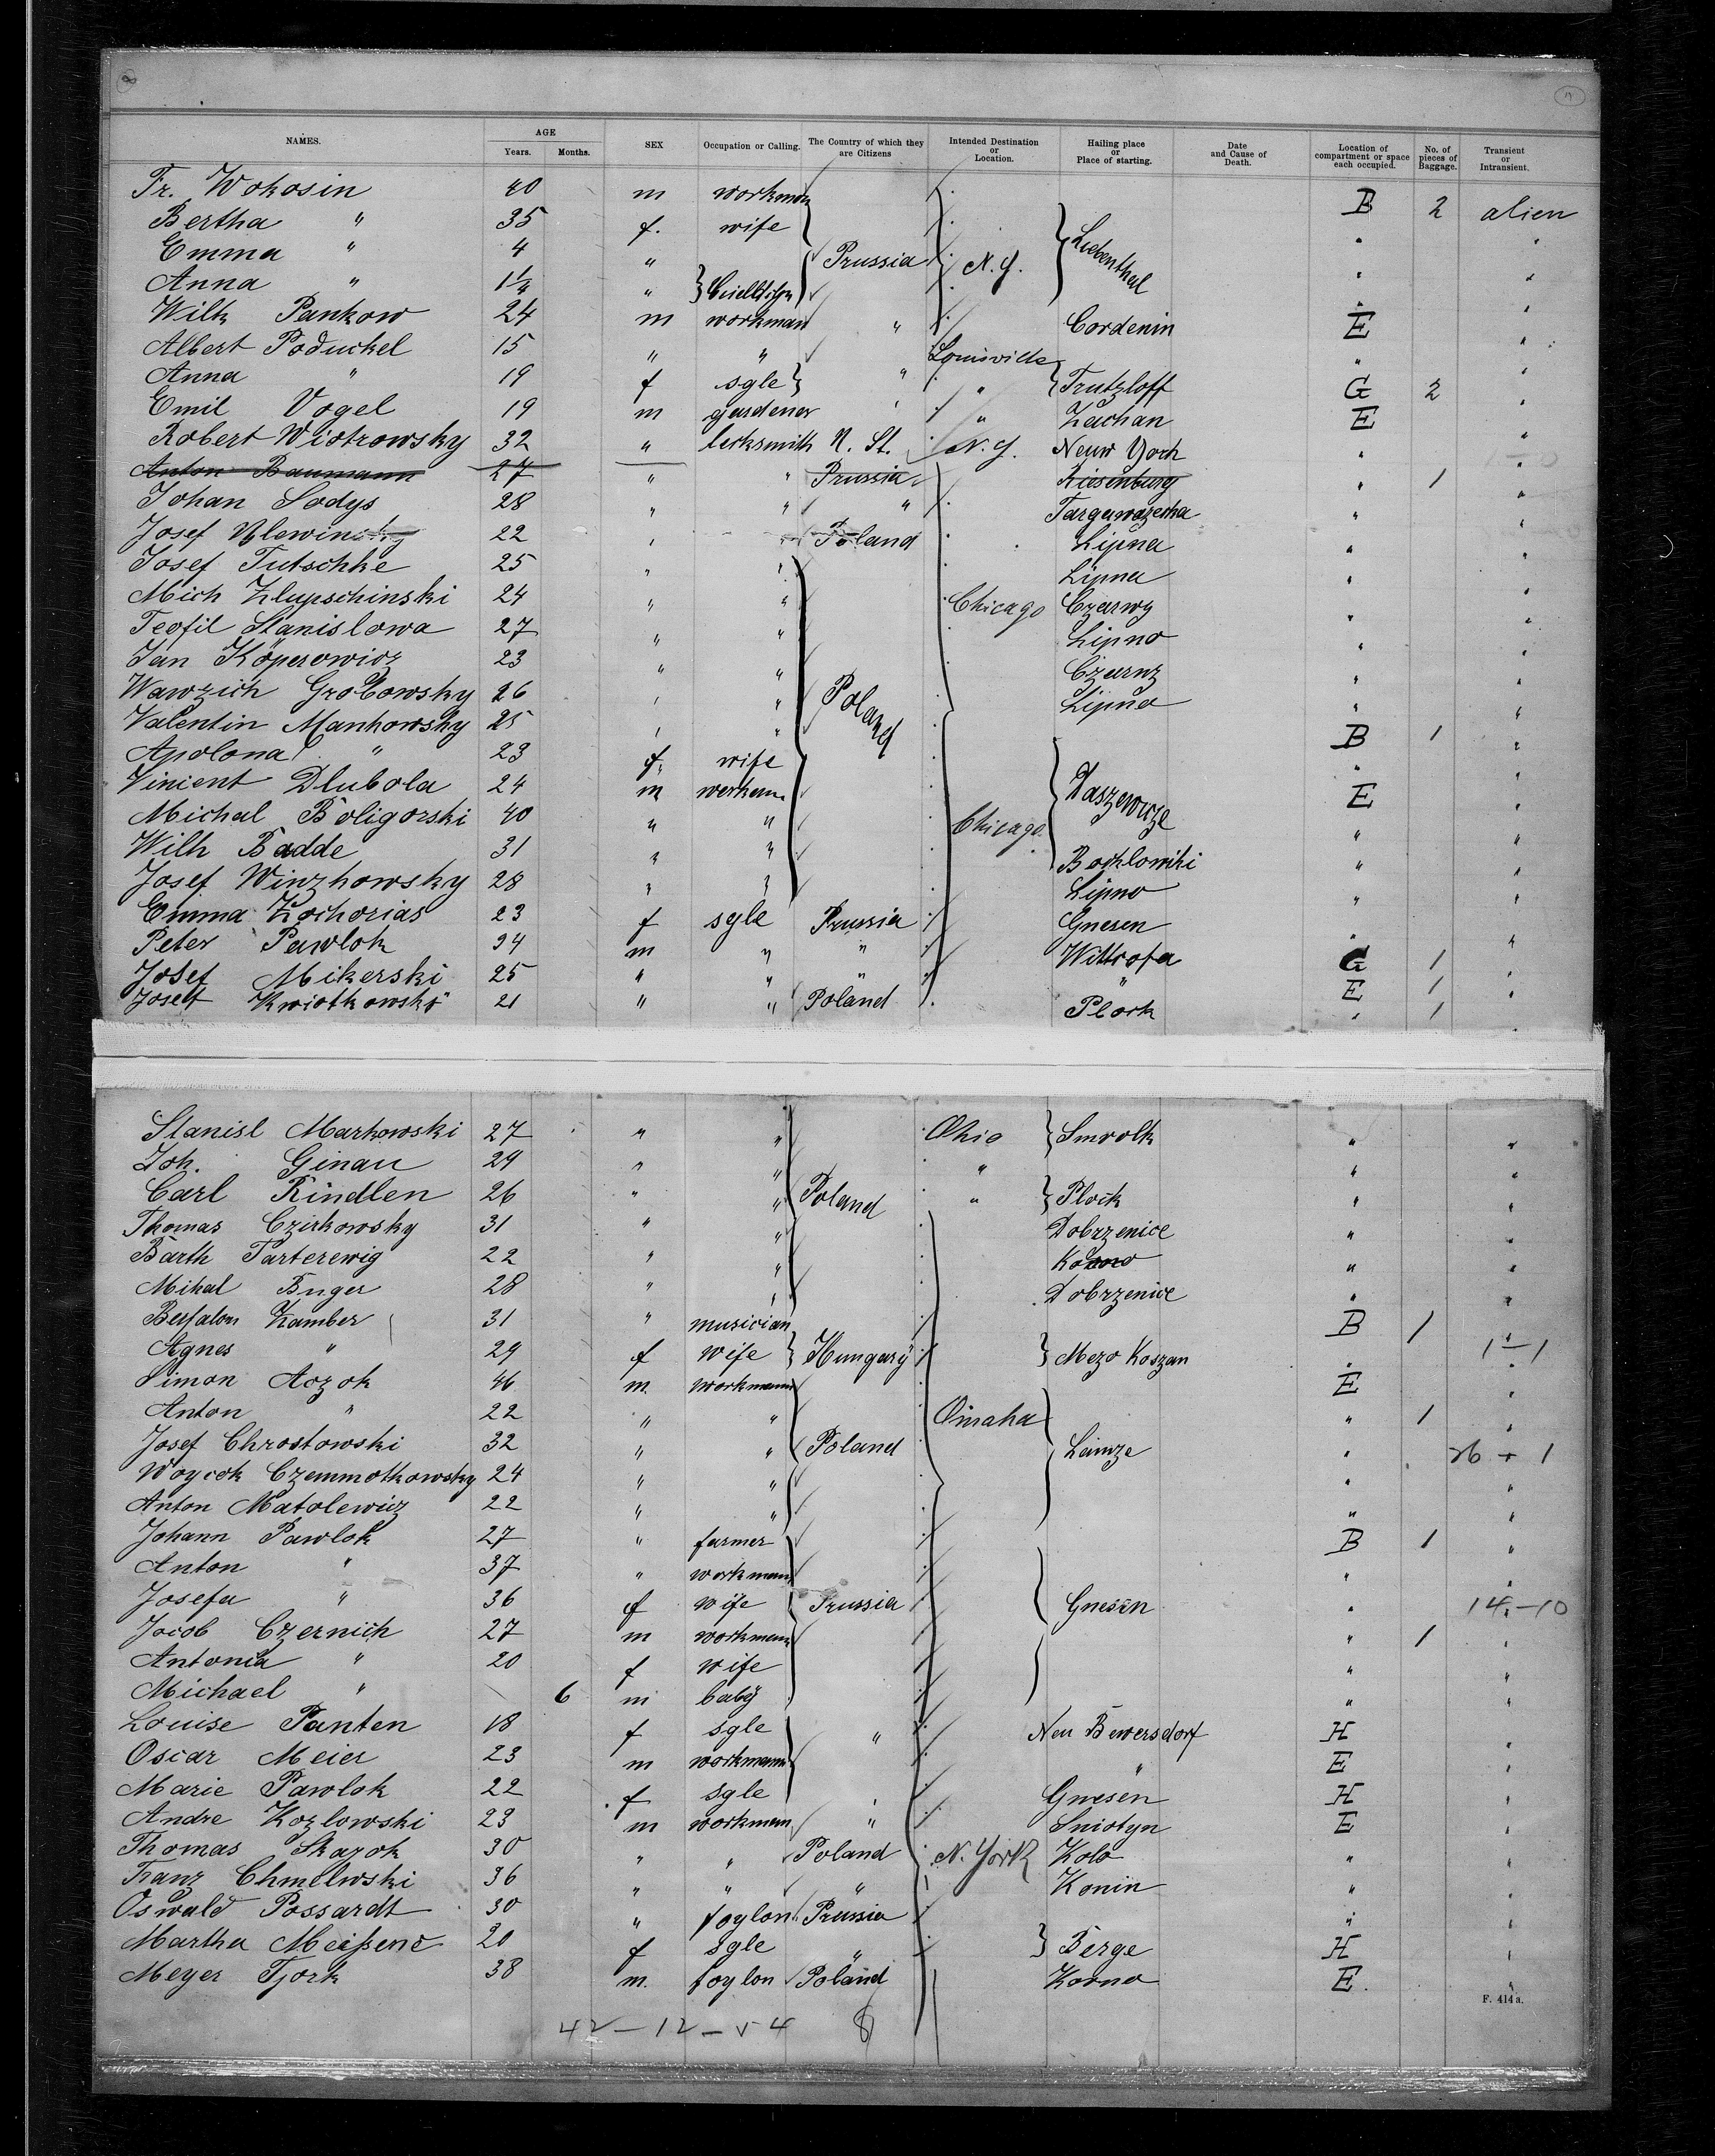 NAMES. AGE Years. Months. SEX Occupation or Calling. The Country of which they are Citizens Intended Destination or Location. Hailing place or Place of starting. Date and Cause of Death. Location of compartment or space each occupied. No. of pieces of Baggage. Transient or Intransient.
Fr. Wokosin 40 m workman B 2 alien
Bertha " 35 f. wife " "
Emma " 4 " Prussia N.Y. Liebenthal " "
Anna " 1¼ " " "
Wilh Pankow 24 m workman " Cordenin E "
Albert Poduckel 15 " " Louisville " "
Anna " 19 f sgle " " Trutzloff G 2 "
Emil Vogel 19 m gardener " " Zachan E "
Robert Wiotrowsky 32 " locksmith N. St. N.Y. Neuw York " "
Anton Baumann 27 " " Prussia Riesenburg " 1 "
Johan Sodys 28 " " " "
Josef 22 " " Poland Lipna " "
Josef Tutschke 25 " " Lipna " "
Mich Zlupschinski 24 " " Chicago Czarwy " "
Teofil Stanislowa 27 " " Lipno " "
Jan Köperowicz 23 " " Czarnz " "
Wawzich Grobowsky 26 " " Poland Lipno " "
Valentin Mankowsky 25 " " B 1 "
Apolona " 23 f. wife " "
Vinient Dlubola 24 m workm. E "
Michal Boligorski 40 " " Chicago " "
Wilh Badde 31 " " Bochlowiki " "
Josef Winzkowsky 28 " " Lipno " "
Emma Zochorias 23 f sgle Prussia Gnesen " "
Peter Pawlok 34 m " " G 1 "
Josef Mikerski 25 " " " " E 1 "
Josef Kwiotkowski 21 " " Poland Plock " 1 "
Stanisl Markowski 27 " " Ohio " "
Joh. Ginau 29 " " " " "
Carl Rindlen 26 " " Poland " Plock " "
Thomas Czirkowsky 31 " " Dobrzenice " "
Barth Parterewig 22 " " " "
Mihal Buger 28 " " Dobrzenice " "
Zamber 31 " musician B 1 "
Agnes " 29 f wife Hungary Mezo Koszan " 1-1
Simon Aozok 46 m. workmann E "
Anton " 22 " " Omaha " 1 "
Josef Chrostowski 32 " " Poland " 26 + 1
Woycek Czemmotkowsky 24 " " " "
Anton Matolewicz 22 " " " "
Johann Pawlok 27 " farmer B 1 "
Anton " 37 " workmann " "
Josefa " 36 f wife Prussia Gnesen " 14-10
Jacob Czernich 27 m workmann " 1 "
Antonia " 20 f wife " "
Michael " 6 m baby " "
Louise Panten 18 f sgle " Neu Bewersdorf H "
Oscar Meier 23 m workmann " E "
Marie Pawlok 22 f sgle " Gnesen H "
Andre Kozlowski 23 m workmann " Sniotyn E "
Thomas Skazok 30 " " Poland N. York Kolo " "
Franz Chmelwski 36 " " " Konin " "
Oswald Possardt 30 " foylon Prussia " "
Martha Meißene 20 f sgle " Berge H "
Meyer Tjork 38 m. foylon Poland Korno E "
F. 414 a.